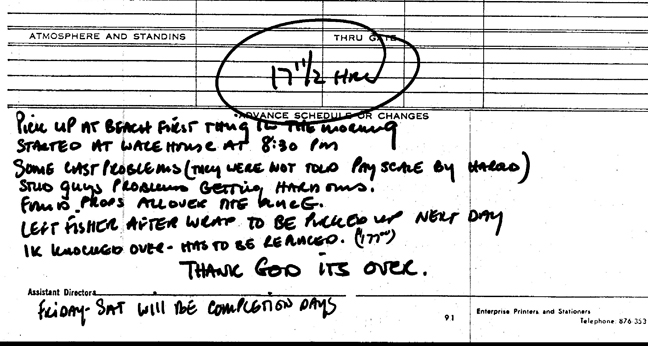 ATMOSPHERE AND STANDINS THRU GATE
17 1/2 HRS
ADVANCE SCHEDULE OR CHANGES
PICK UP AT BEACH FIRST THING IN THE MORNING
STARTED AT WAREHOUSE AT 8:30 PM
SOME CAST PROBLEMS (THEY WERE NOT TOLD PAY SCALE BY HAROLD)
STUD GUYS PROBLEMS GETTING HARD ONS.
FOUND PROPS ALL OVER THE PLACE.
LEFT FISHER AFTER WRAP TO BE PICKED UP NEXT DAY
1K KNOCKED OVER - HAS TO BE REPLACED.
THANK GOD ITS OVER.
Assistant Directors
FRIDAY - SAT WILL BE COMPLETION DAYS
91 Enterprise Printers and Stationers
Telephone: 876 353